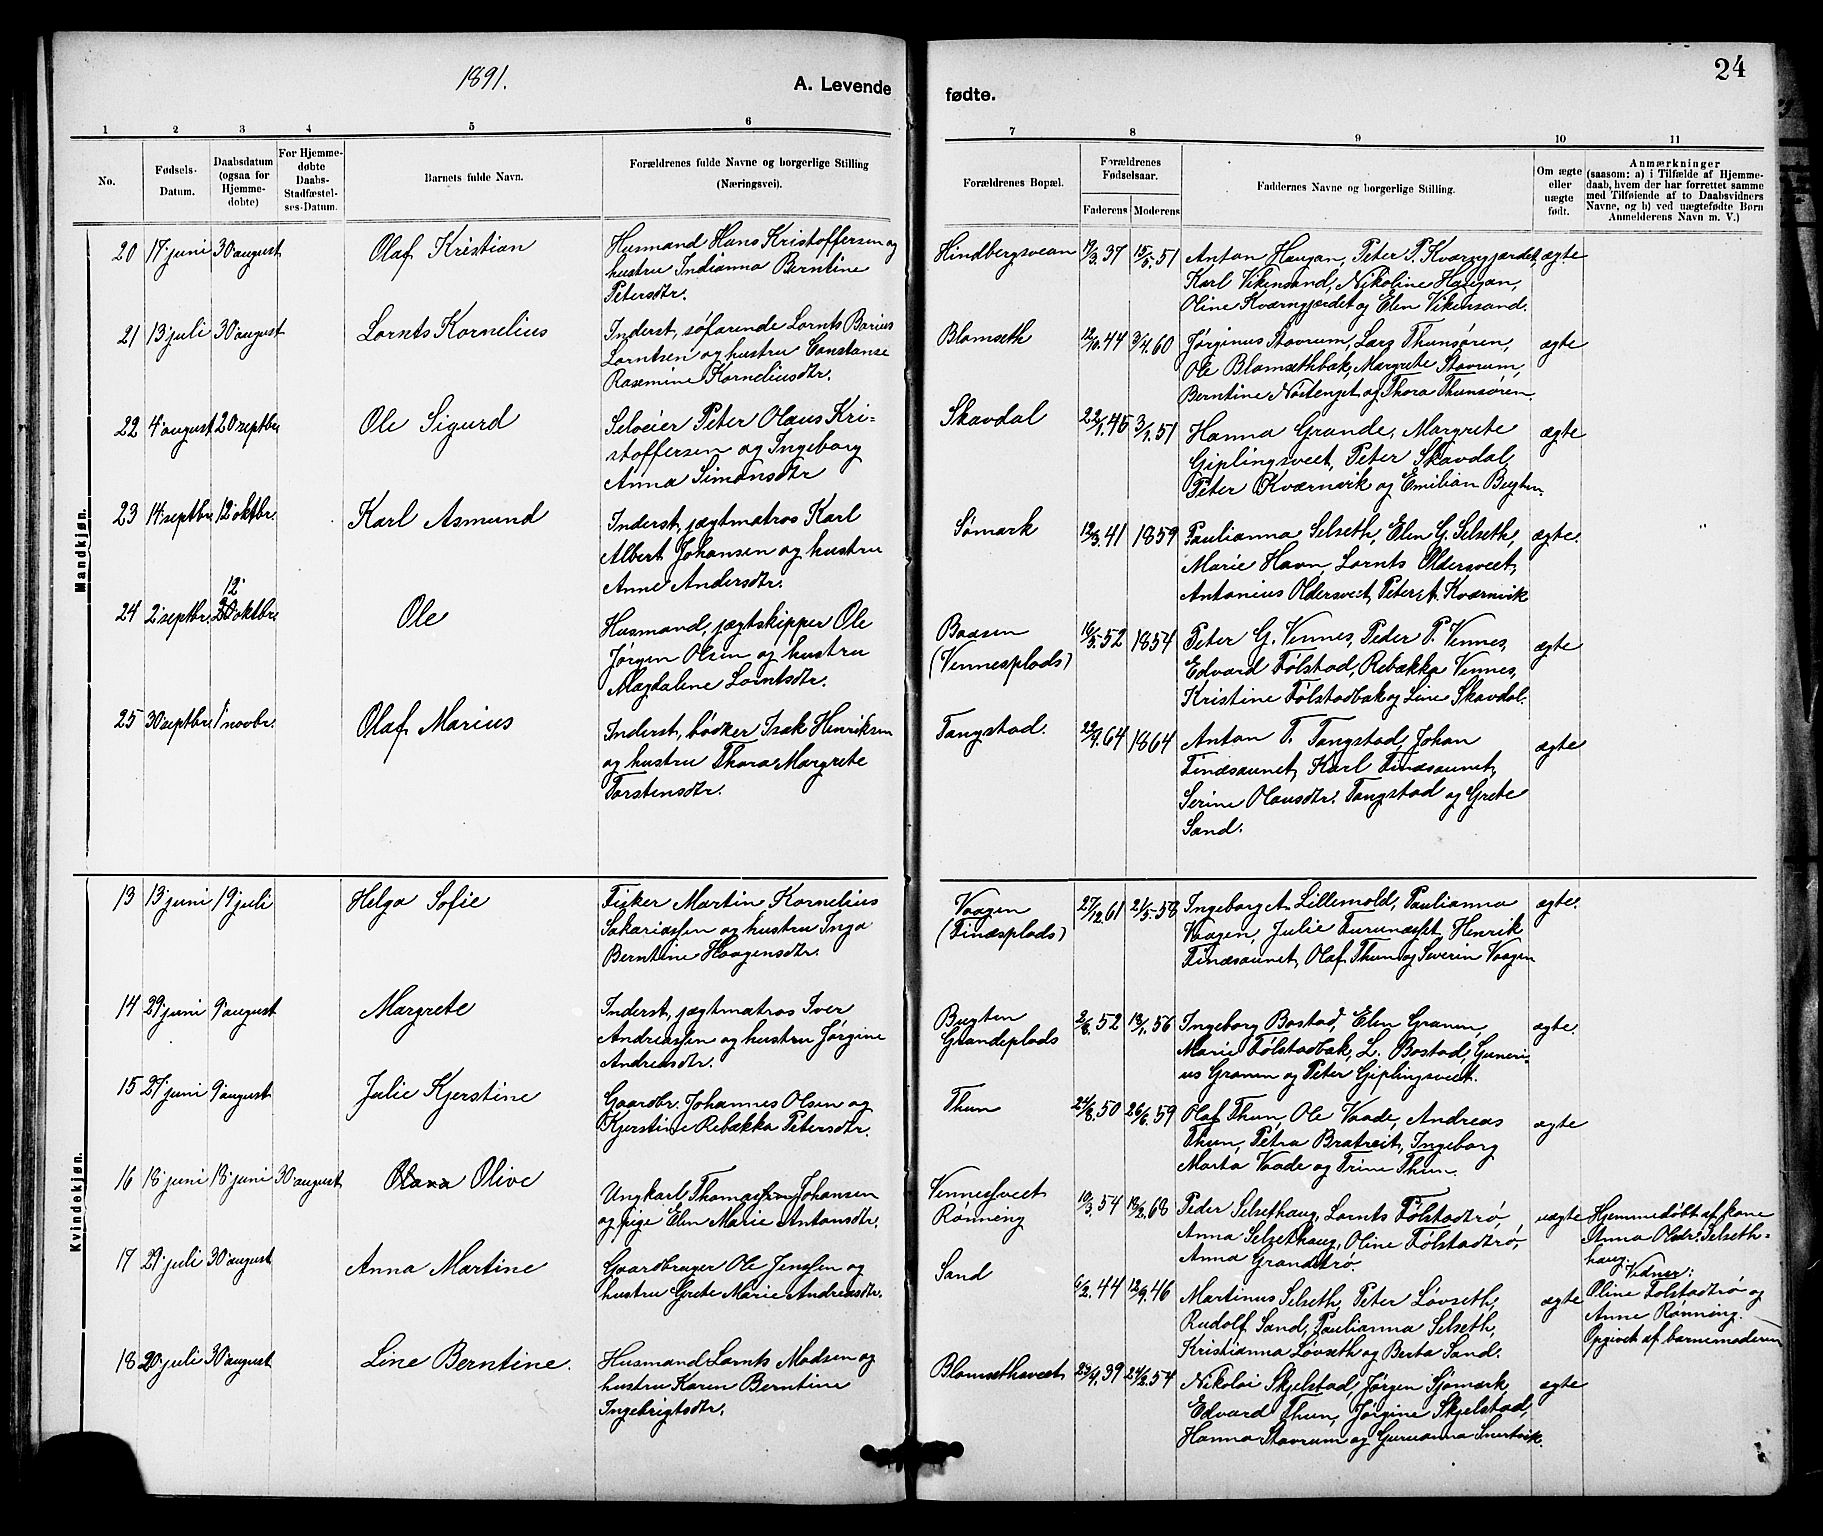 1891.
A. Levende
fødte.
24
1 2 3 4 5 6 7 8 9 10 11
No.
Fødsels-Datum.
Daabsdatum (ogsaa for Hjemme-døbte)
For Hjemme-døbte Daabs-Stadfæstel-ses-Datum.
Barnets fulde Navn.
Forældrenes fulde Navne og borgerlige Stilling (Næringsvei).
Forældrenes Bopæl.
Forældrenes Fødselsaar.
Faderens Moderens
Faddernes Navne og borgerlige Stilling.
Om ægte eller uægte født.
Anmærkninger
(saasom: a) i Tilfælde af Hjemme-
daab, hvem der har forrettet samme
med Tilføiende af to Daabsvidners
Navne, og b) ved uægtefødte Børn
Anmelderens Navn m. V.)
Mandkjøn.
20 17' juni 30' august Olaf Kristian
Husmand Hans Kristoffersen og
hustru Indianna Berntine
Petersdtr.
Hindbergsvean 7/3.37 15/5.51
Anton Haugan, Peter P. Kværngjærdet,
Karl Vikensand, Nikoline Haugan,
Oline Kværngjærdet og Elen Vikensand.
ægte
21 13' juli 30' august Lornts Kornelius
Inderst, søfarende Lornts Barius
Lorntsen og hustru Constanse
Rasmine Korneliusdtr.
Blomseth 12/10.44 3/4.60
Jørginus Stavrum, Lars Thunsøren,
Ole Blomsethbak, Margrete Stavrum,
Berntine Nostenget og Thora Thunsøren.
ægte
22 4' august 20 septbr Ole Sigurd
Seloeier Peter Olaus Kri-
stoffersen og Ingeborg
Anna Simonsdtr
Skavdal 22/1.45 3/1.51
Hanna Grande, Margrete
Giplingsveet, Peter Skavdal,
Peter Kværnvik og Emilian Bugten.
ægte
23 14' septbr. 12' oktbr. Karl Asmund
Inderst, jægtmatros Karl
Albert Johansen og hustru
Anne Andersdtr.
Sømark 12/3.41 1859
Paulianna Selseth, Elen G. Selseth,
Marie Havn, Lornts Oldersveet,
Antonius Oldersveet, Peter A. Kværnvik
ægte.
12'
24 2' septbr. oktbr. Ole
Husmand, jægtskipper Ole
Jørgen Olsen og hustru
Magdalene Lorntsdtr.
Baasen
(Vennesplads)
16/5.52 1854
Peter G. Vennes, Peder P. Vennes,
Edvard Følstad, Rebækka Vennes,
Kristine Følstadbak og Line Skavdal.
ægte
25 30 septbr. 1' novbr. Olaf Marius
Inderst, bødker Isak Henriksen
og hustru Thora Margrete
Torstensdtr.
Tangstad. 22/9.64 1864
Anton T. Tangstad, Johan
Finæsaunet, Karl Finæsaunet,
Serine Olausdtr. Tangstad og Grete
Sand.
ægte
Kvindekjøn.
13 13' juni 19' juli Helga Sofie
Fisker Martin Kornelius
Sakariassen og hustru Inga
Berntine Haagensdtr.
Vaagen
(Finæsplads)
27/12.61 21/5.58
Ingeborg A. Lillemold, Paulianna
Vaagen, Julie Furunæsset, Henrik
Finæsaunet, Olaf Thun og Severin Vaagen
ægte.
14 29' juni 9' august Margrete
Inderst, jægtmatros Iver
Andreassen og hustru Jørgine
Andreasdtr.
Bugten
Grandeplads
2/8.52 13/1.56
Ingeborg Bostad, Elen Granen,
Marie Følstadbak, L. Bostad, Guneri-
us Granen og Peter Giplingsveet.
ægte.
15 27' juni 9' august Julie Kjerstine
Gaardbr. Johannes Olsen og
Kjerstine Rebækka Petersdtr.
Thun 24/8.50 26/6.59
Olaf Thun, Ole Vaade, Andreas
Thun, Petra Bratreit, Ingeborg
Marta Vaade og Trine Thun.
ægte
16 18' juni 18' juni 30' august Olava Olive
Ungkarl Thomas Johansen
og pige Elen Marie Antonsdtr.
Vennesveet
Rønning
10/3.54 13/2.68
Peder Selsethaug, Lornts Følstadtrø,
Anna Selsethaug, Oline Følstadtrø,
Anna Grandtrø.
uægte
Hjemmedøbt af kone
Anna Olsdr. Selseth-
haug.
Vidner:
Oline Følstadtrø og
Anne Rønning.
Opgivet af barnemoderen
17 29' juli 30' august Anna Martine
Gaardbruger Ole Jenssen og
hustru Grete Marie Andreasdtr.
Sand 6/2.44 12/9.46
Martinus Selseth, Peter Løvseth,
Rudolf Sand, Paulianna Selseth,
Kristianna Løvseth og Berta Sand.
ægte
18 20' juli 30' august Line Berntine.
Husmand Lornts Madsen og
hustru Karen Berntine
Ingebrigtsdtr.
Blomsethsveet 29/9.39 24/2.54
Nikolai Skjelstad, Jørgen Sjømark,
Edvard Thun, Jørgine Skjelstad,
Hanna Stavrum og Guruanna Snertvik.
ægte